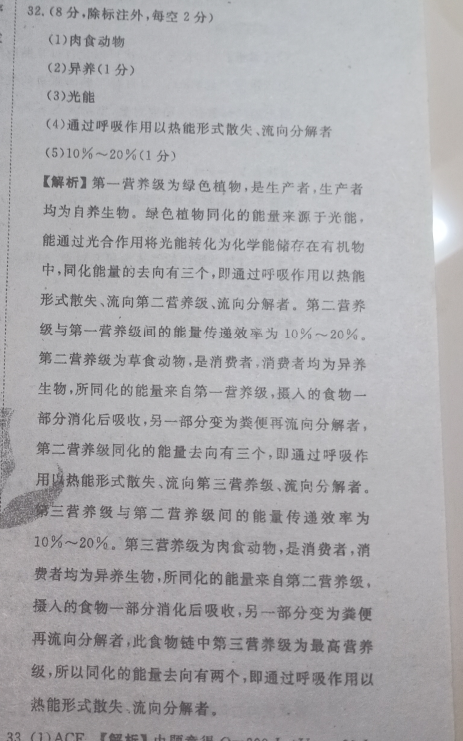 32.(8分,除标注外,每空2分)
(1)肉食动物
(2)异养(1分)
(3)光能
(4)通过呼吸作用以热能形式散失、流向分解者
(5)10%~20%(1分)
【解析】第一营养级为绿色植物,是生产者,生产者
均为自养生物。绿色植物同化的能量来源于光能,
能通过光合作用将光能转化为化学能储存在有机物
中,同化能量的去向有三个,即通过呼吸作用以热能
形式散失、流向第二营养级、流向分解者。第二营养
级与第一营养级间的能量传递效率为10%~20%。
第二营养级为草食动物,是消费者,消费者均为异养
生物,所同化的能量来自第一营养级,摄入的食物一
部分消化后吸收,另一部分变为粪便再流向分解者,
第二营养级同化的能量去向有三个,即通过呼吸作
用以热能形式散失、流向第三营养级、流向分解者。
第三营养级与第二营养级间的能量传递效率为
10%~20%。第三营养级为肉食动物,是消费者,消
费者均为异养生物,所同化的能量来自第二营养级,
摄入的食物一部分消化后吸收,另一部分变为粪便
再流向分解者,此食物链中第三营养级为最高营养
级,所以同化的能量去向有两个,即通过呼吸作用以
热能形式散失、流向分解者。
33.(1)ACE 【解析】由题意得